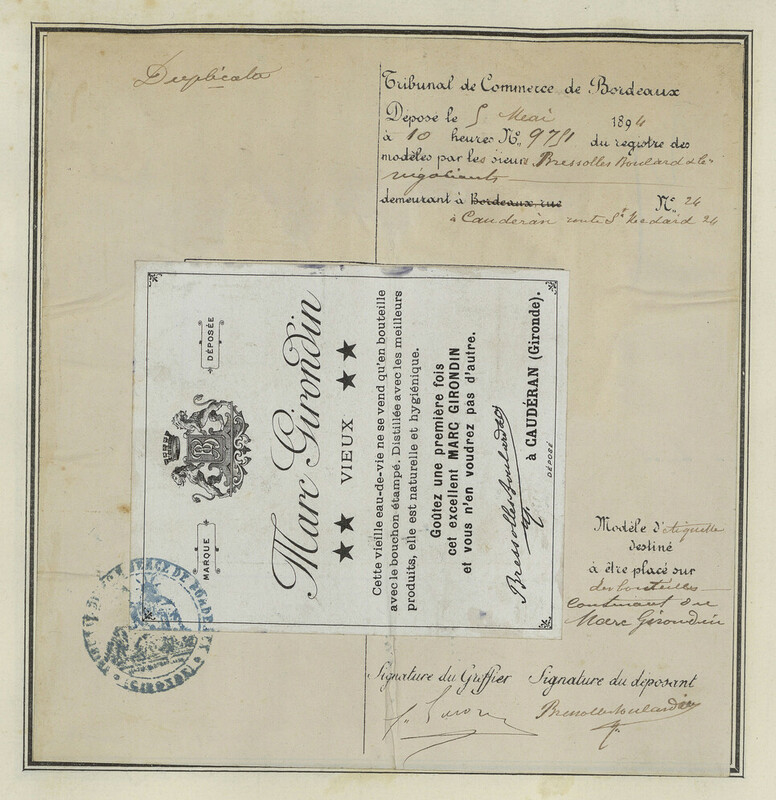 Duplicata
Tribunal de Commerce de Bordeaux
Déposé le 5 Mai 1894
à 10 heures N° 9751 du registre des
modèles par les sieurs Bressolles Boulard & Cie
négociants
demeurant à Bordeaux, rue N° 24
à Caudéran route St Médard 24
MARQUE DÉPOSÉE
B
Marc Girondin
★★ VIEUX ★★
Cette vieille eau-de-vie ne se vend qu'en bouteille
avec le bouchon étampé. Distillée avec les meilleurs
produits, elle est naturelle et hygiénique.
Goûtez une première fois
cet excellent MARC GIRONDIN
et vous n'en voudrez pas d'autre.
Bressolles Boulard & Cie
à CAUDÉRAN (Gironde).
DÉPOSÉ
Modèle d'étiquette
destiné
à être placé sur
des bouteilles
contenant du
Marc Girondin
TRIBUNAL DE COMMERCE DE BORDEAUX
(GIRONDE)
Signature du Greffier Signature du déposant
Bressolles Boulard & Cie